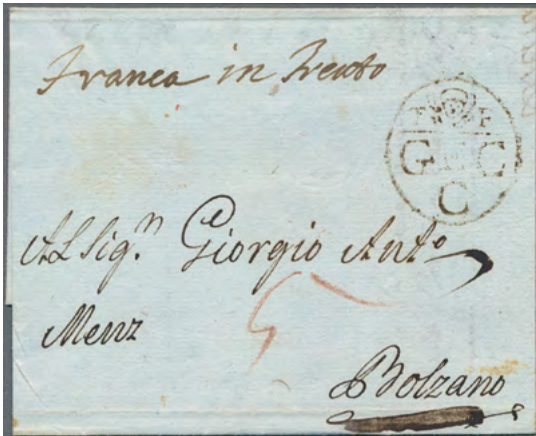 Franca in Trento
G C
C
Al Sig.n Giorgio Ant.o
Menz
5
Bolzano